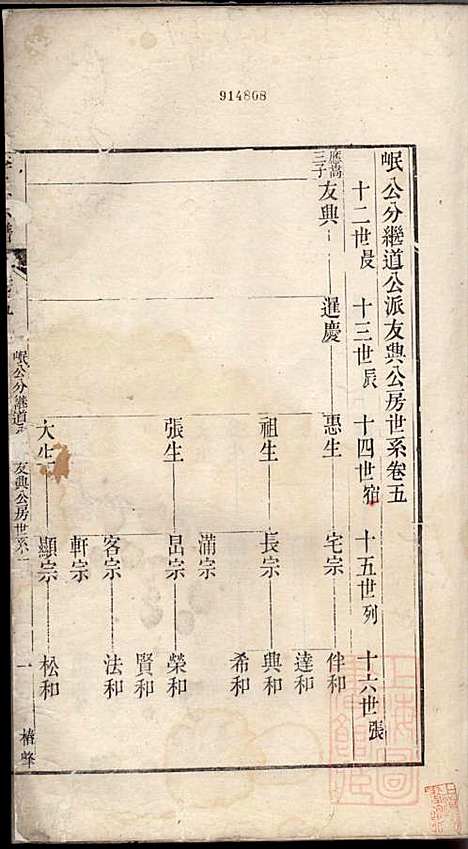 914808
岷公分繼道公派友典公房世系卷五
十二世昃 十三世辰 十四世宿 十五世列 十六世張
應嵩三子 友典 暹慶 惠生 宅宗 伴和
達和
祖生 長宗 典和
希和
滿宗
張生 昌宗 榮和
賢和
客宗 法和
軒宗
大生 顯宗 松和
岷公分繼道 友典公房世系 一 椿峰